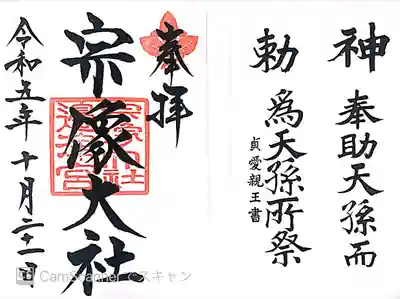 神勅
奉助天孫而
爲天孫所祭
貞愛親王書
奉拝
宗像大社
令和五年十月二十一日
CamScanner でスキャン